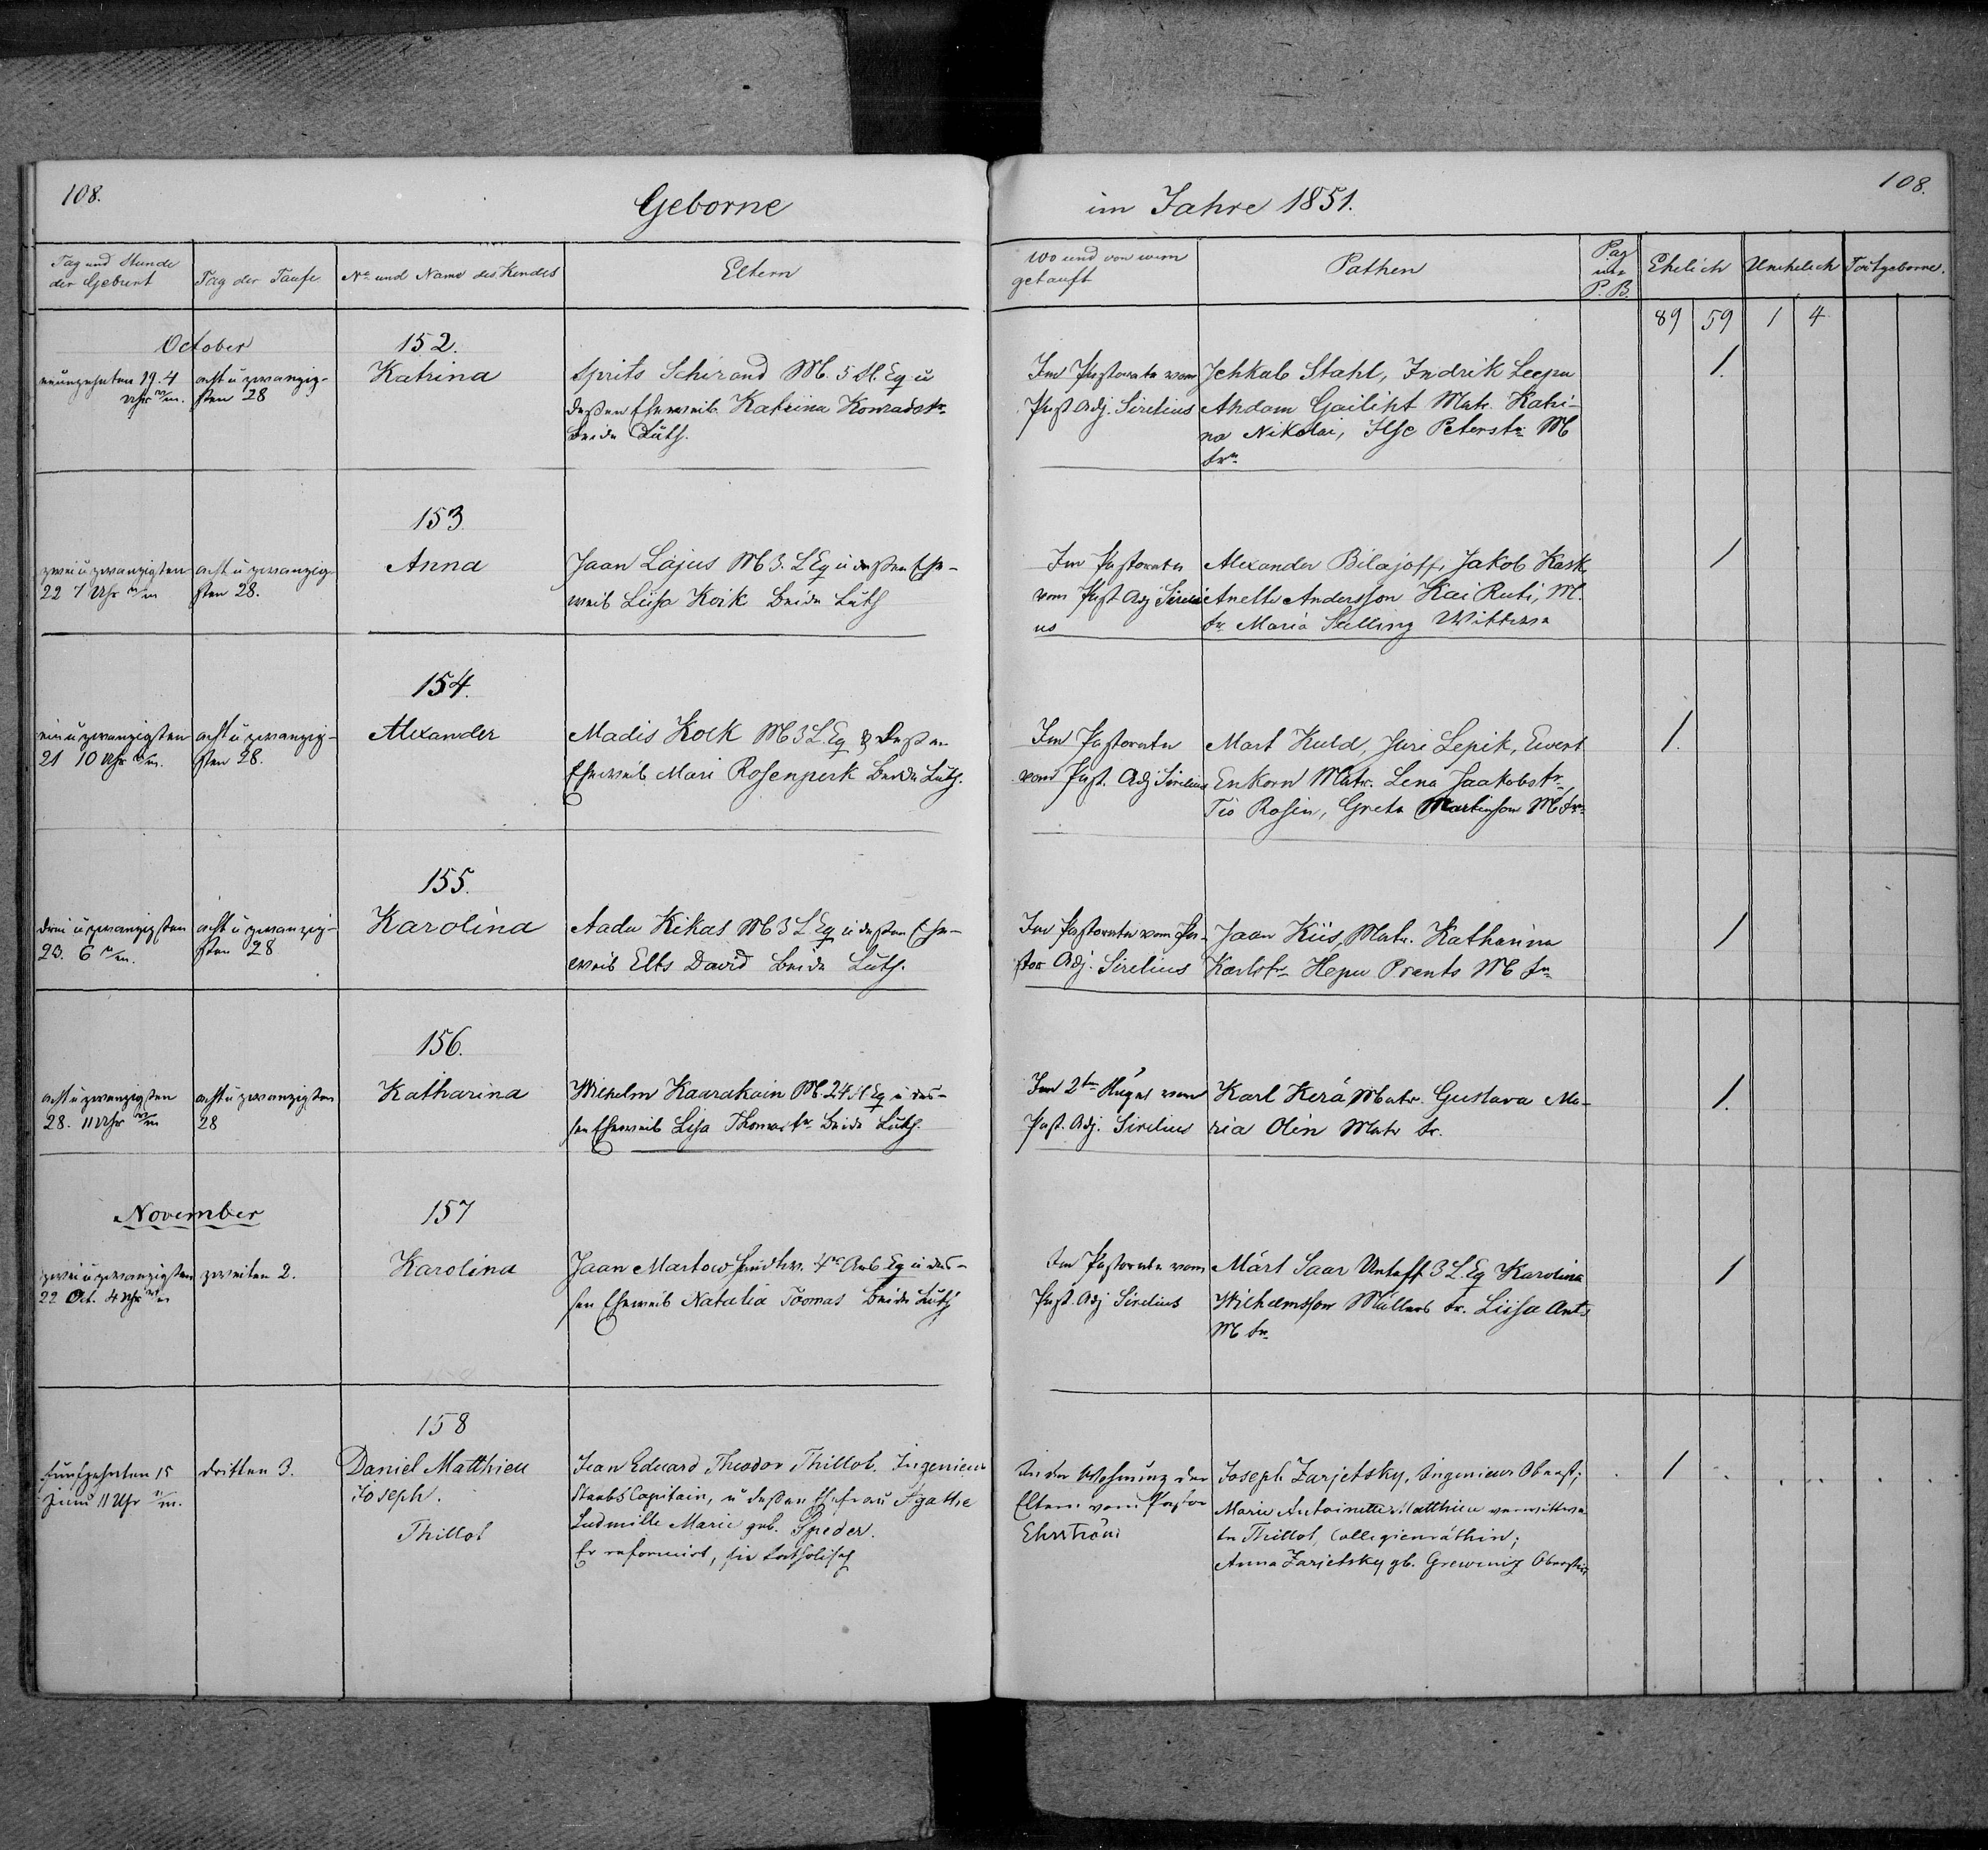 108.
Geborne
im Jahre 1851.
108.
Tag und Stunde
der Geburt
Tag der Taufe
No und Name des Kindes
Eltern
Wo und von wem
getauft
Pathen
Pag
P. B.
Ehelich
Unehelich
Todtgeborne.
89 59 1 4
October
152.
neunzehnten 19. 4
Uhr
acht u zwanzig-
sten 28
Katrina
Sprits Schirand M. 5 Fl. Eq. u
deßen Eheweib Katrina Konradstr
beide Luth.
Im Pastorate vom
Past. Adj. Sirelius
Jehkab Stahl, Indrik Leepa
Ahdam Gailiht Matr. Katri-
na Nikolai, Ilse Peterstr M
trn
1.
153.
zwei u zwanzigsten
22 7 Uhr
acht u zwanzig
sten 28.
Anna
Jaan Lajus M 3. L Eq u deßen Ehe-
weib Liisa Koik beide Luth
Im Pastorate
vom Past. Adj Sireli
us
Alexander Bilajoff, Jakob Kask,
Anette Andersson Kai Ruti, M.
tr Maria Selling Wittwe
1
154.
ein u zwanzigsten
21 10 Uhr
acht u zwanzig-
sten 28.
Alexander
Madis Kock M 3 L. Eq & deßen
Eheweib Mari Rosenperk beide Luth.
Im Pastorate
vom Past. Adj Sirelius
Mart Kuld, Juri Lepik, Ewert
Enkorn Matr. Lena Jaakobstr,
Tio Rosin, Greta Martinson M tr
1.
155.
drei u zwanzigsten
23. 6
acht u zwanzig-
sten 28
Karolina
Aadu Kikas M 3 L Eq u deßen Ehe-
weib Elts David beide Luth.
Im Pastorate vom Pa-
stor Adj. Sirelius
Jaan Kiis, Matr. Katharina
Karlstr Hepu Prants M tr
1
156.
acht u zwanzigsten
28. 11 Uhr
acht u zwanzigsten
28
Katharina
Wilhelm Kaarakain M. 24 Fl Eq u des-
sen Eheweib Lisa Thomastr beide Luth.
Im 2ten vom
Past. Adj. Sirelius
Karl Kerä Matr. Gustava Ma-
ria Olin Matr tr.
1.
November
157
zwei u zwanzigsten
22 Oct. 4 Uhr
zweiten 2.
Karolina
Jaan Martow 4ten Arb. Eq u des-
sen Eheweib Natalia Toomas beide Luth
Im Pastorate vom
Past. Adj Sirelius
Märt Saar Untoff 3 L. Eq Karolina
Wilhelmsson Müllers tr. Liisa Ants
M tr
1
158
fünfzehnten 15
Juni 11 Uhr
dritten 3.
Daniel Matthieu
Joseph.
Thillot
Jean Eduard Theodor Thillot. Ingenieur
Staabs Capitain, u deßen Ehefrau Agathe
Ludmille Marie geb. Speder.
Er reformirt, sie katholisch
In der Wohnung der
Eltern vom Pastor
Ehrström
Joseph Zarjetsky, Ingenieur Oberst;
Marie Antoinette Matthieu verwittwe
te Thillot, Collegienräthin;
Anna Zarjetsky gb. Grewing Oberstin
1